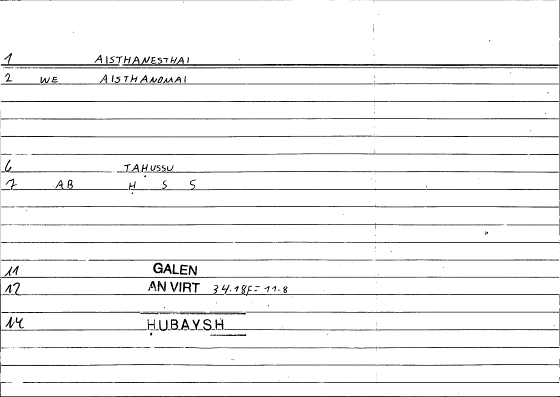 1 AISTHANESTHAI
2 WE AISTHANOMAI
6 TAḤUSSU
7 AB Ḥ S S
11 GALEN
12 AN VIRT 34.18f = 11.8
14 ḤUBAYSH